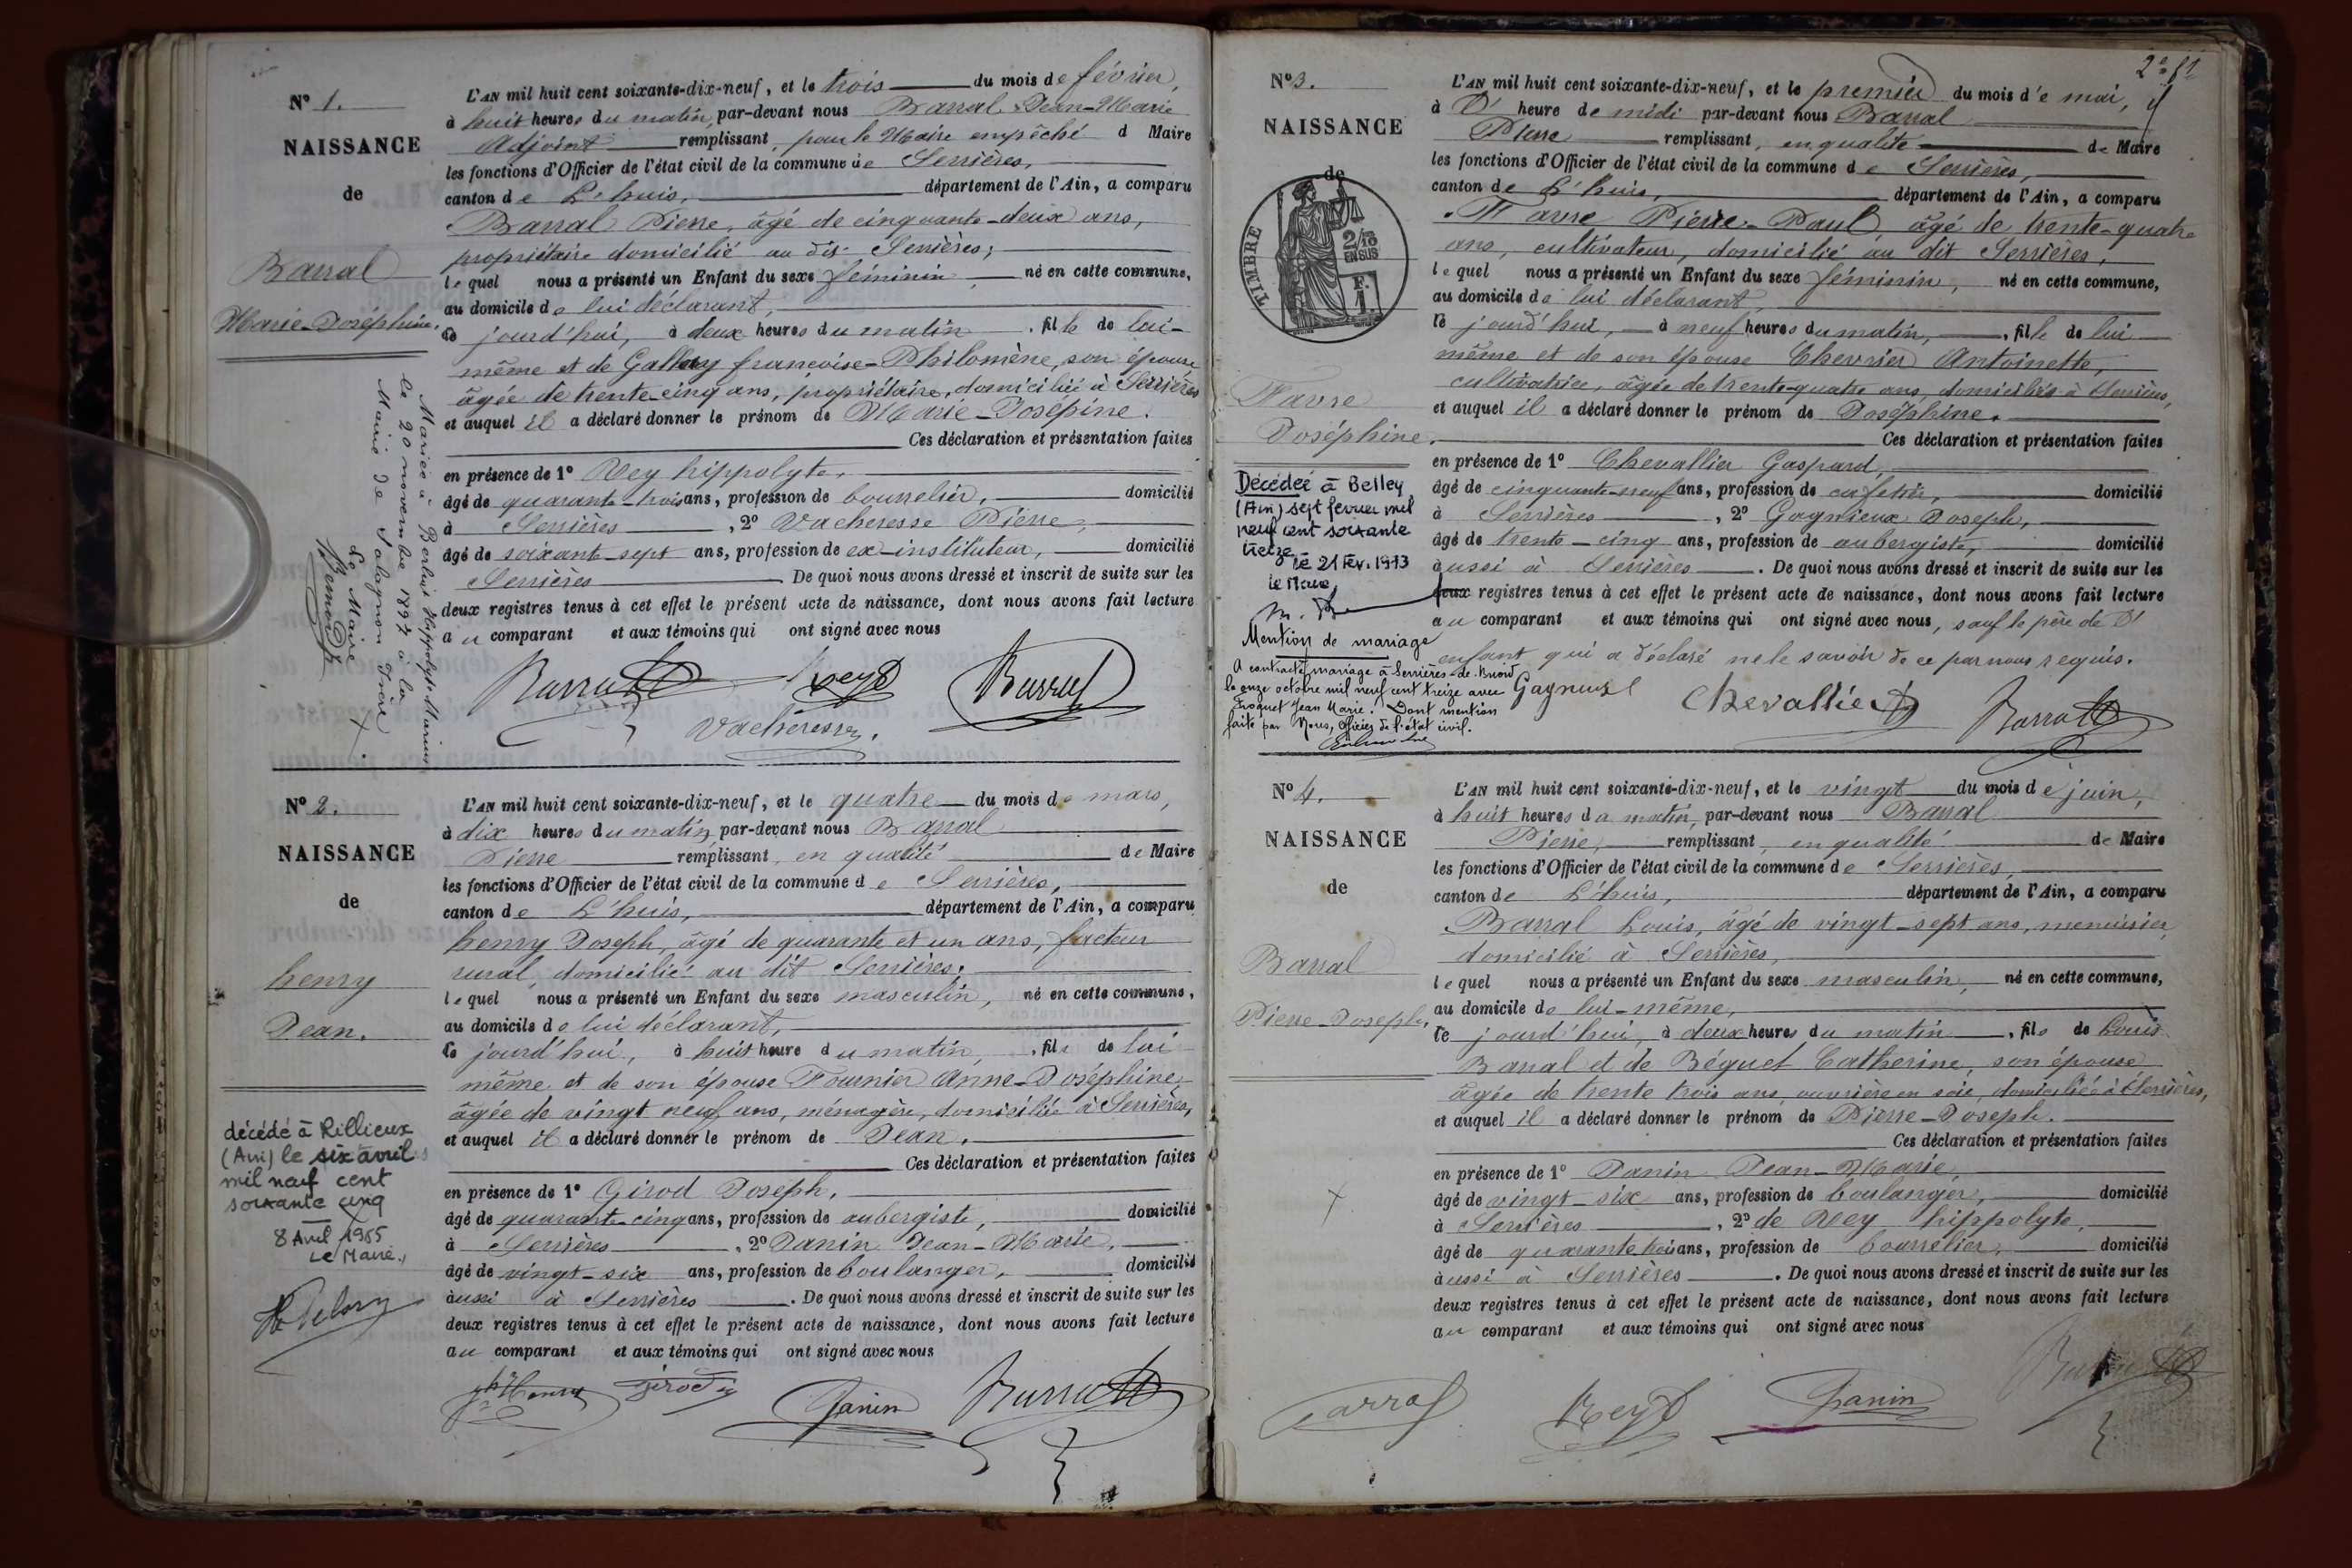 N° 1.
NAISSANCE
de
Barral
Marie-Joséphine.
L'AN mil huit cent soixante-dix-neuf, et le trois du mois de février,
à huit heures du matin, par-devant nous Barral Jean-Marie
Adjoint remplissant, pour le Maire empêché d Maire
les fonctions d'Officier de l'état civil de la commune de Serrières,
canton de L'huis, département de l'Ain, a comparu
Barral Pierre, âgé de cinquante-deux ans,
propriétaire domicilié au dit Serrières;
lequel nous a présenté un Enfant du sexe féminin, né en cette commune,
au domicile de lui déclarant,
ce jourd'hui, à deux heures du matin, fille de lui-
même et de Gallay françoise-Philomène, son épouse
âgée de trente-cinq ans, propriétaire, domiciliée à Serrières
et auquel il a déclaré donner le prénom de Marie-Josépine.
Ces déclaration et présentation faites
en présence de 1° Rey hippolyte,
âgé de quarante-trois ans, profession de bourrelier, domicilié
à Serrières, 2° Vacheresse Pierre,
âgé de soixant-sept ans, profession de ex-instituteur, domicilié
Serrières. De quoi nous avons dressé et inscrit de suite sur les
deux registres tenus à cet effet le présent acte de naissance, dont nous avons fait lecture
au comparant et aux témoins qui ont signé avec nous
Barral Rey Barral
Vacheresse.
Mariée à Berlioz Hippolyte Marius
le 20 novembre 1897 à la
Mairie de
Le Maire
N° 2.
NAISSANCE
de
henry
Jean.
décédé à Rillieux
(Ain) le six avril
mil neuf cent
soixante cinq
8 Avril 1965
Le Maire,
L'AN mil huit cent soixante-dix-neuf, et le quatre du mois de mars,
à dix heures du matin, par-devant nous Barral
Pierre remplissant, en qualité de Maire
les fonctions d'Officier de l'état civil de la commune de Serrières,
canton de L'huis, département de l'Ain, a comparu
henry Joseph, âgé de quarante et un ans, facteur
rural, domicilié au dit Serrières;
lequel nous a présenté un Enfant du sexe masculin, né en cette commune,
au domicile de lui déclarant,
ce jourd'hui, à huit heure du matin, fils de lui-
même et de son épouse Fournier Anne-Joséphine,
âgée de vingt neuf ans, ménagère, domiciliée à Serrières,
et auquel il a déclaré donner le prénom de Jean.
Ces déclaration et présentation faites
en présence de 1° Girod Joseph,
âgé de quarante-cinq ans, profession de aubergiste, domicilié
à Serrières, 2° Janin Jean-Marie,
âgé de vingt-six ans, profession de boulanger, domicilié
aussi à Serrières. De quoi nous avons dressé et inscrit de suite sur les
deux registres tenus à cet effet le présent acte de naissance, dont nous avons fait lecture
au comparant et aux témoins qui ont signé avec nous
Henry Girod Janin Barral
N° 3.
NAISSANCE
de
TIMBRE
2/10 EN SUS
F. 1.
Favre
Joséphine.
Décédée à Belley
(Ain) sept février mil
neuf cent soixante
treize
le 21 Fév. 1973
le Maire
Mention de mariage
A contracté mariage à Serrières-de-Briord
le onze octobre mil neuf cent treize avec
Froquet Jean Marie. Dont mention
faite par Nous, Officier de l'état civil.
L'AN mil huit cent soixante-dix-neuf, et le premier du mois de mai,
à D' heure de midi par-devant nous Barral
Pierre remplissant, en qualité de Maire
les fonctions d'Officier de l'état civil de la commune de Serrières,
canton de L'huis, département de l'Ain, a comparu
Favre Pierre-Paul, âgé de trente-quatre
ans, cultivateur, domicilié au dit Serrières,
lequel nous a présenté un Enfant du sexe féminin, né en cette commune,
au domicile de lui déclarant,
ce jourd'hui, à neuf heures du matin, fille de lui
même et de son épouse Chevrier Antoinette,
cultivatrice, âgée de trente-quatre ans, domiciliée à Serrières,
et auquel il a déclaré donner le prénom de Joséphine.
Ces déclaration et présentation faites
en présence de 1° Chevallier Gaspard,
âgé de cinquante-neuf ans, profession de cafetier, domicilié
à Serrières, 2° Gagnieux Joseph,
âgé de trente-cinq ans, profession de aubergiste, domicilié
aussi à Serrières. De quoi nous avons dressé et inscrit de suite sur les
deux registres tenus à cet effet le présent acte de naissance, dont nous avons fait lecture
au comparant et aux témoins qui ont signé avec nous, sauf le père de l'
enfant qui a déclaré ne le savoir de ce par nous requis.
Chevallier Barral
N° 4.
NAISSANCE
de
Barral
Pierre-Joseph,
L'AN mil huit cent soixante-dix-neuf, et le vingt du mois de juin,
à huit heures du matin, par-devant nous Barral
Pierre, remplissant, en qualité de Maire
les fonctions d'Officier de l'état civil de la commune de Serrières,
canton de L'huis, département de l'Ain, a comparu
Barral Louis, âgé de vingt-sept ans, menuisier,
domicilié à Serrières,
lequel nous a présenté un Enfant du sexe masculin, né en cette commune,
au domicile de lui-même,
ce jourd'hui, à deux heures du matin, fils de Louis
Barral et de Béguet Catherine, son épouse
âgée de trente trois ans, ouvrière en soie, domiciliée à Serrières,
et auquel il a déclaré donner le prénom de Pierre-Joseph.
Ces déclaration et présentation faites
en présence de 1° Janin Jean-Marie
âgé de vingt-six ans, profession de boulanger, domicilié
à Serrières, 2° de Rey hippolyte,
âgé de quarante trois ans, profession de bourrelier, domicilié
aussi à Serrières. De quoi nous avons dressé et inscrit de suite sur les
deux registres tenus à cet effet le présent acte de naissance, dont nous avons fait lecture
au comparant et aux témoins qui ont signé avec nous
Barral Rey Janin Barral